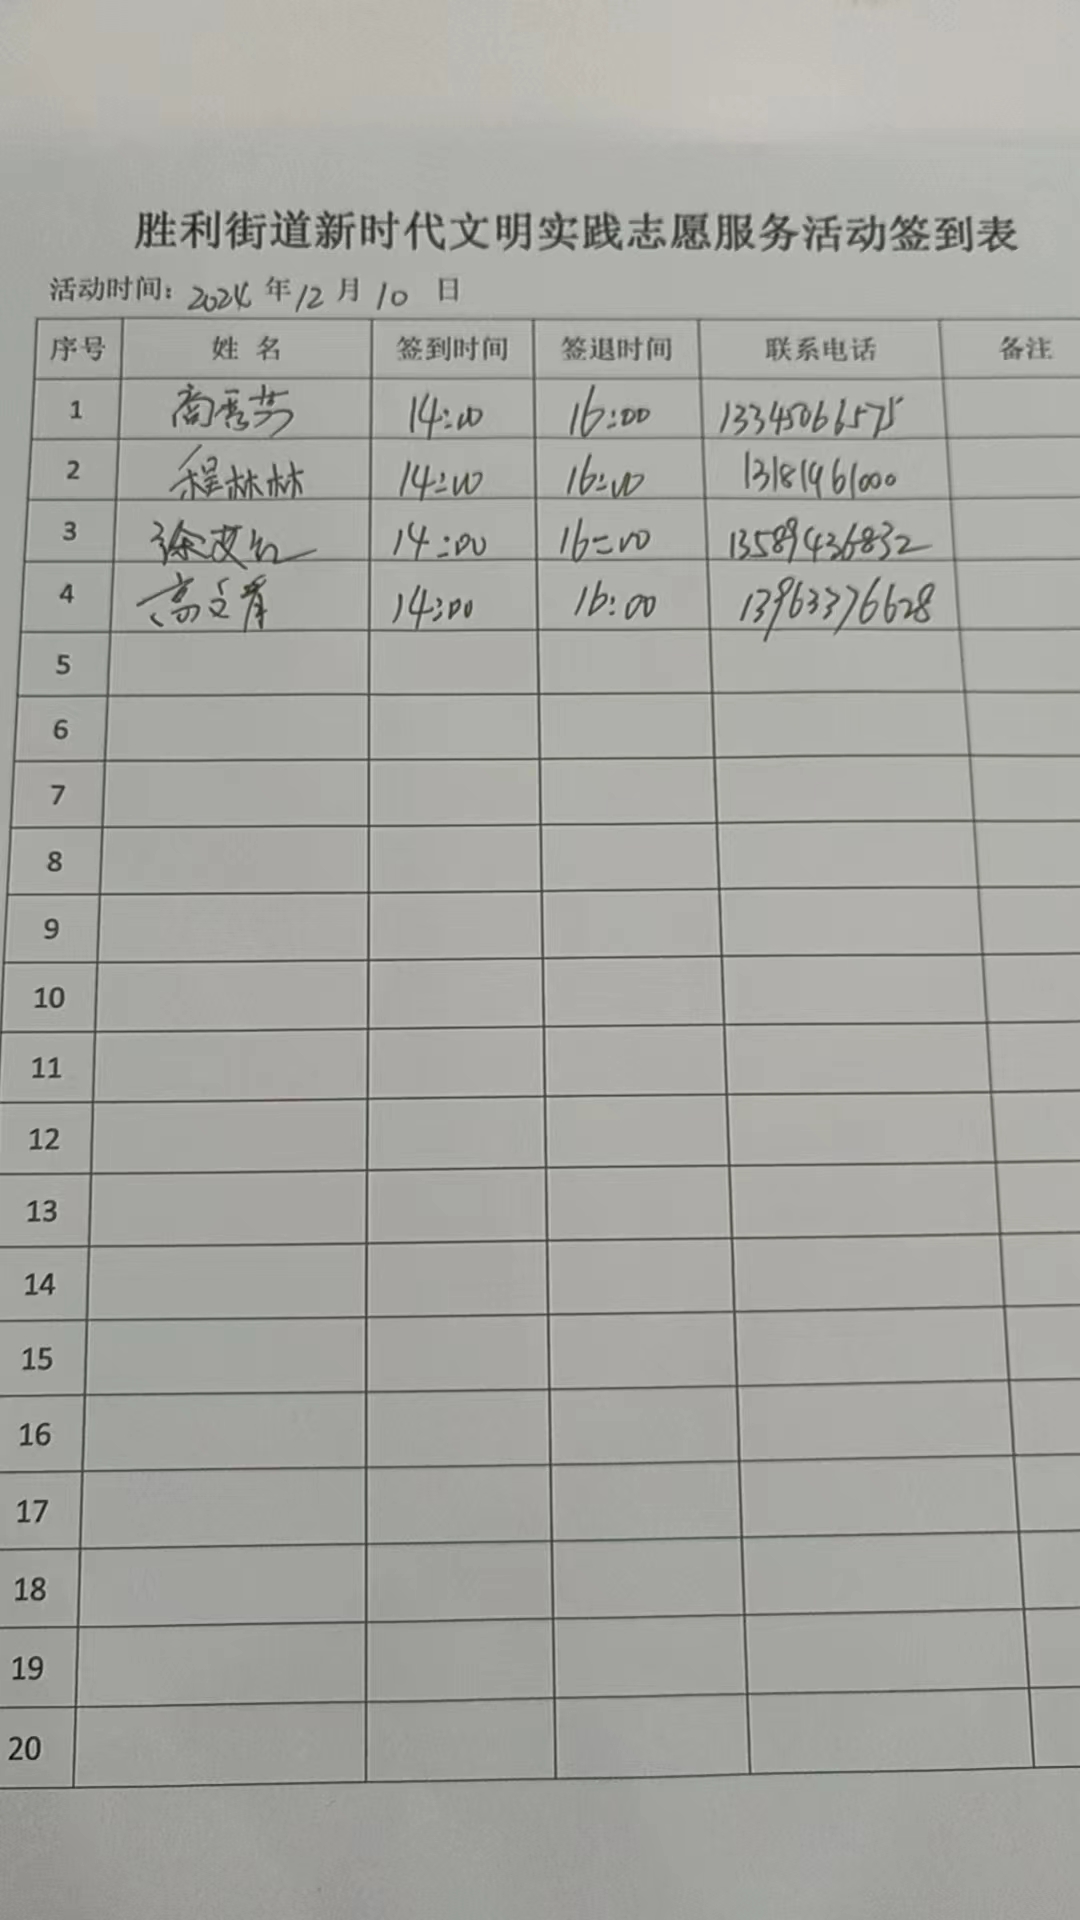 胜利街道新时代文明实践志愿服务活动签到表
活动时间：2024 年 12 月 10 日
序号 姓 名 签到时间 签退时间 联系电话 备注
1 商秀芳 14:00 16:00 13345066575
2 程林林 14:00 16:00 13181961000
3 徐 14:00 16:00 13589436832
4 高文青 14:00 16:00 13963376628
5
6
7
8
9
10
11
12
13
14
15
16
17
18
19
20